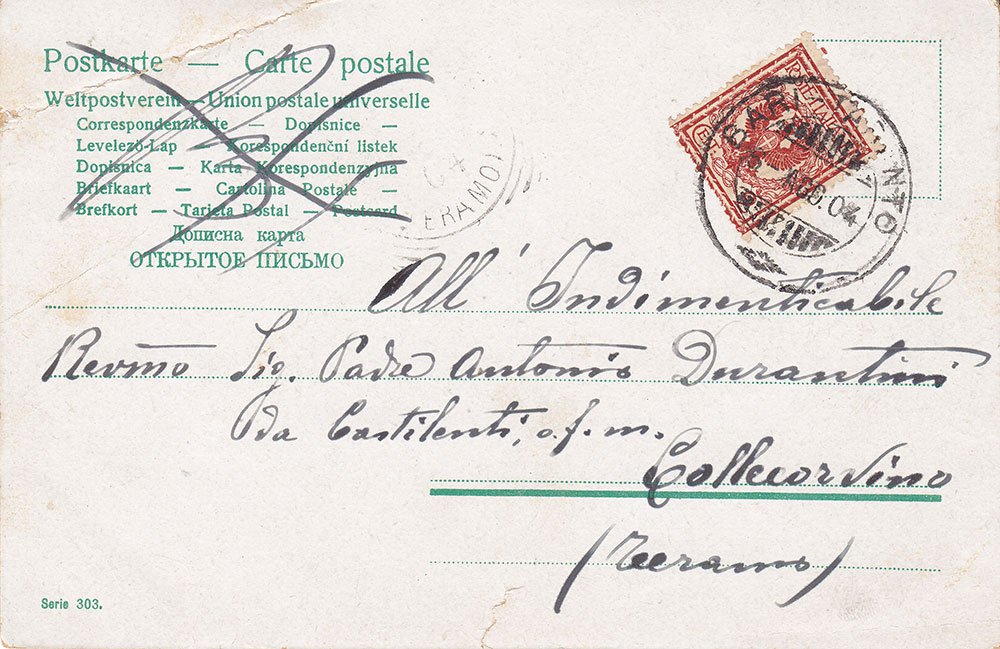 Postkarte — Carte postale
Weltpostverein — Union postale universelle
Correspondenzkarte — Dopisnice —
Levelező-Lap — Korespondenční listek
Dopisnica — Karta Korespondenzyjna
Briefkaart — Cartolina Postale —
Brefkort — Tarjeta Postal — Postcard
Дописна карта
ОТКРЫТОЕ ПИСЬМО
04
ERAMO)
BARI
NTO
AGO.04
All' Indimenticabile
Revmo Sig. Padre Antonio Durantini
Da Castilenti, o.f.m.
Collecorvino
(Teramo)
Serie 303.